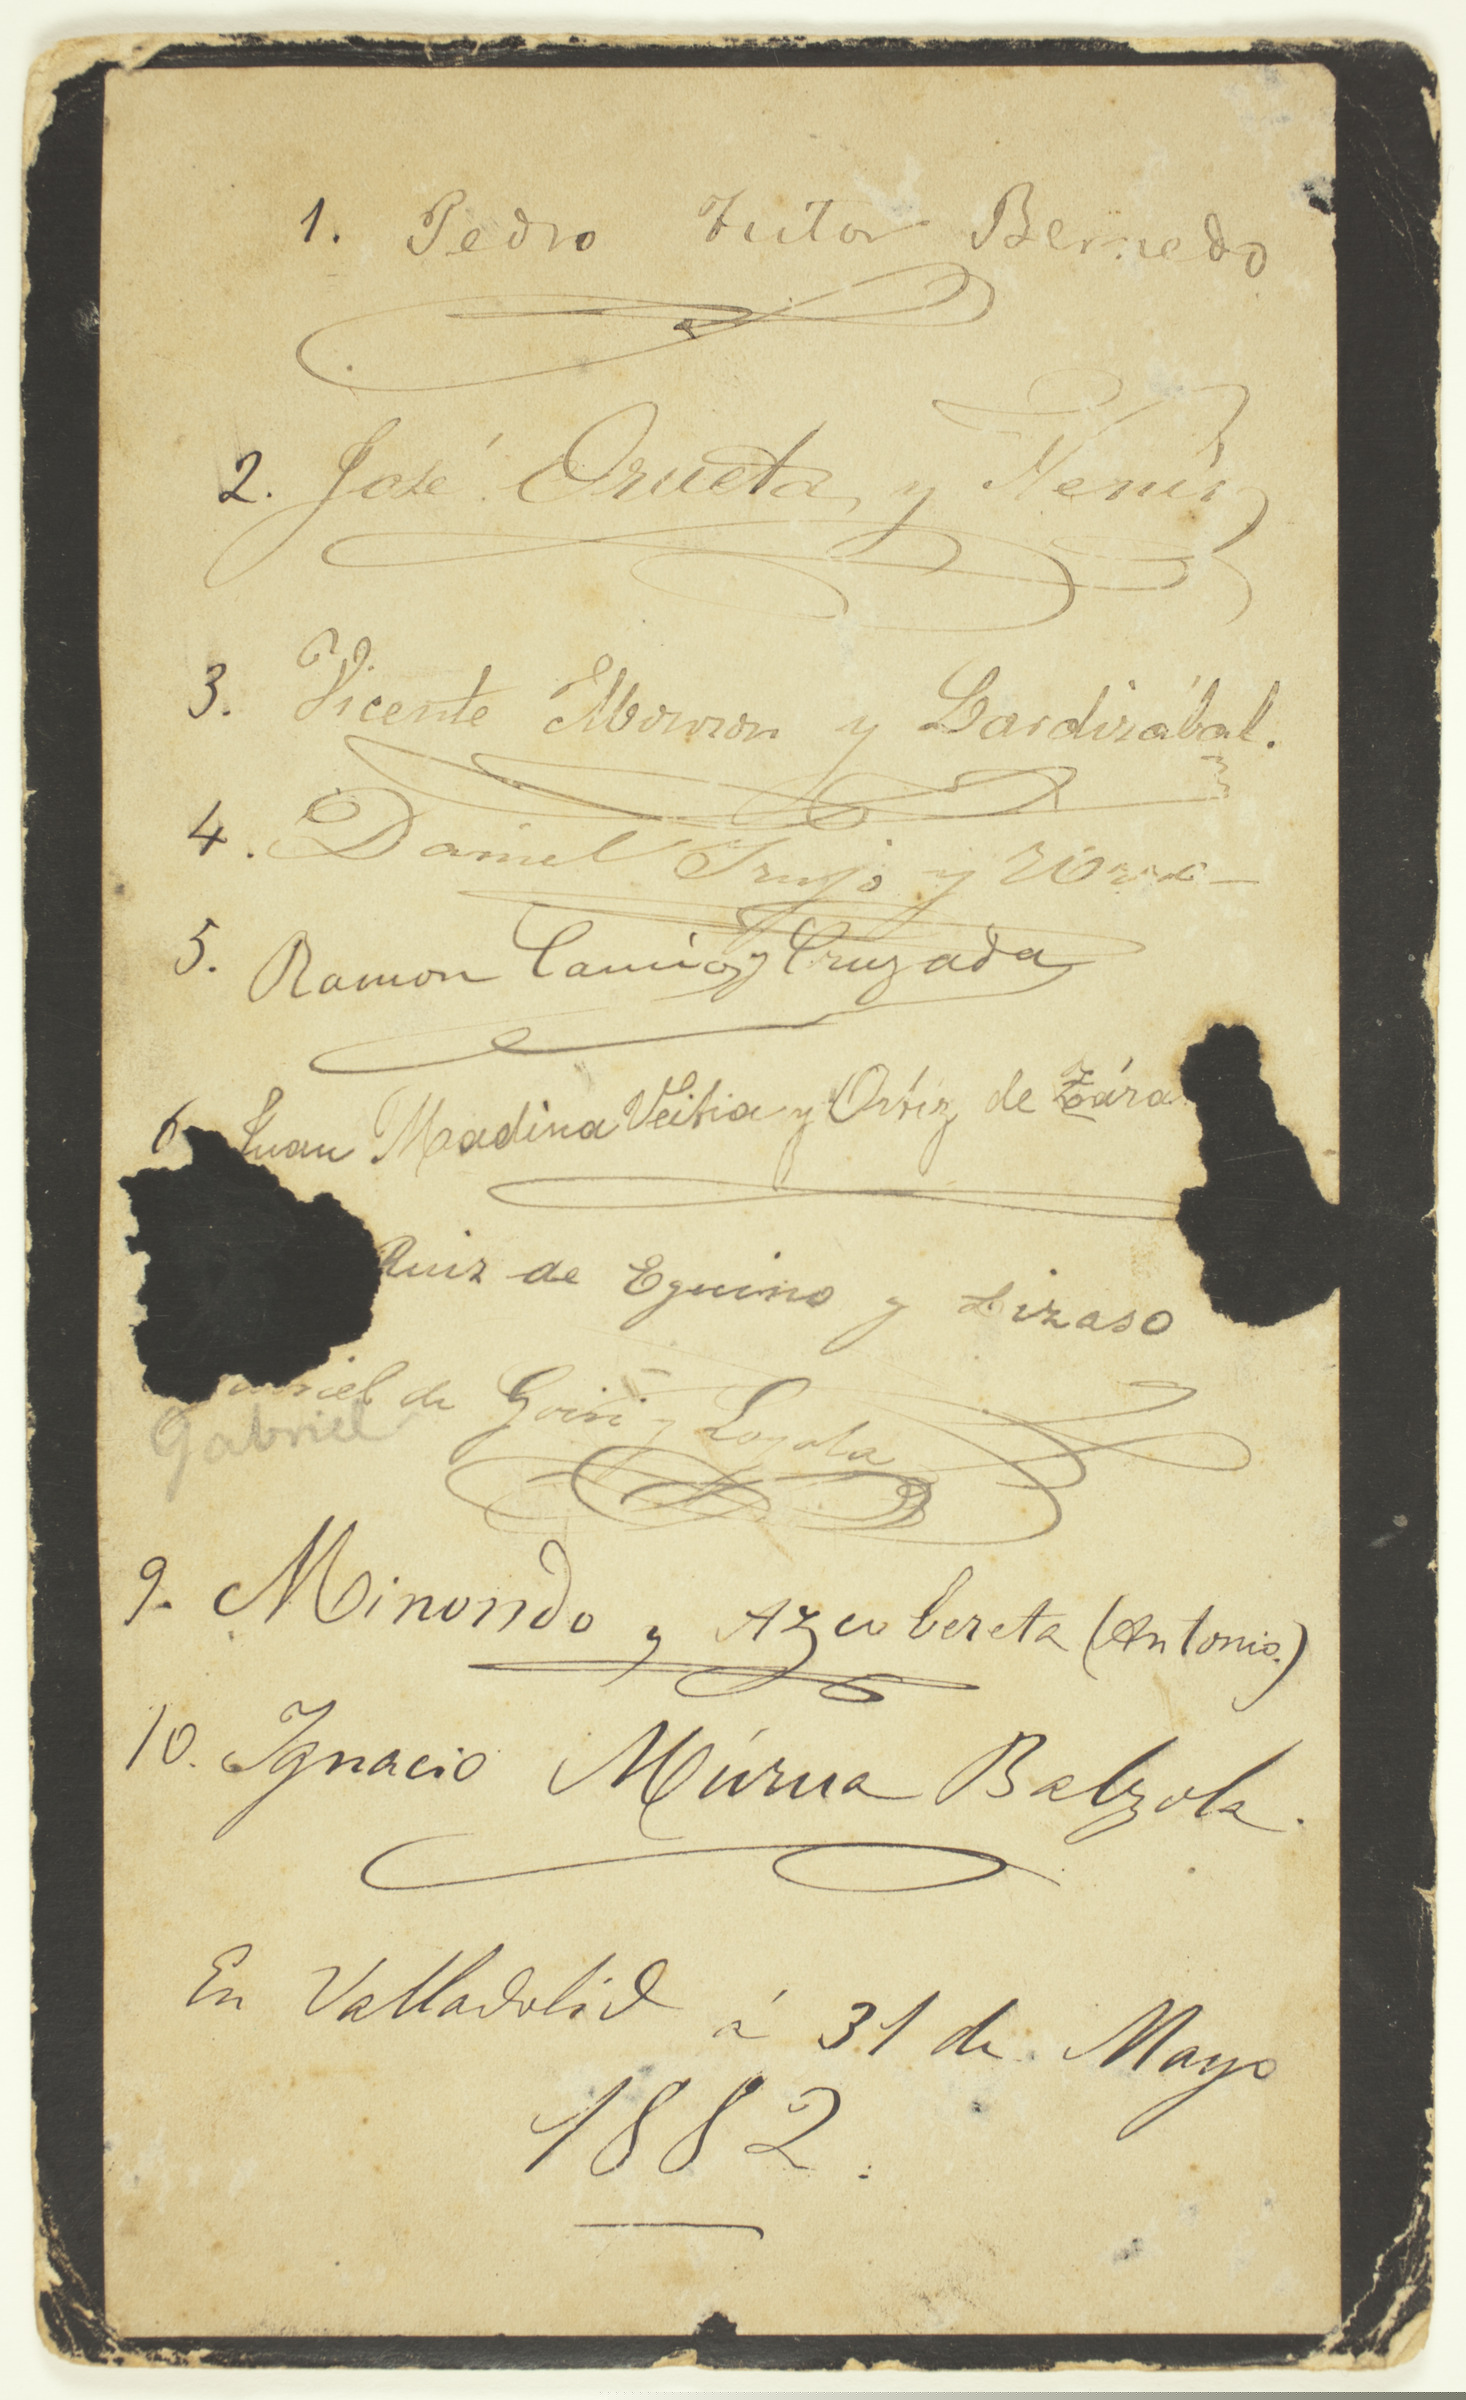 1. Pedro Tutor Bernedo
2. José Orueta y Nenín
3. Vicente Monzon y Lardizábal.
4. Daniel Irujo y Urra
5. Ramon Camio y Cruzada
6 Juan Madina Veitia y Ortiz de Zára
Ruiz de Eguino y Lizaso
de Goñi y Loyola
Gabriel
9. Minondo y Azcubereta (Antonio.)
10. Ignacio Múrua Balzola.
En Valladolid á 31 de Mayo
1882.